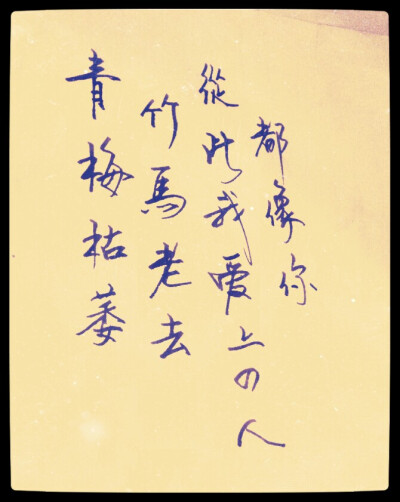 青梅枯萎
竹馬老去
從此我愛上の人
都像你